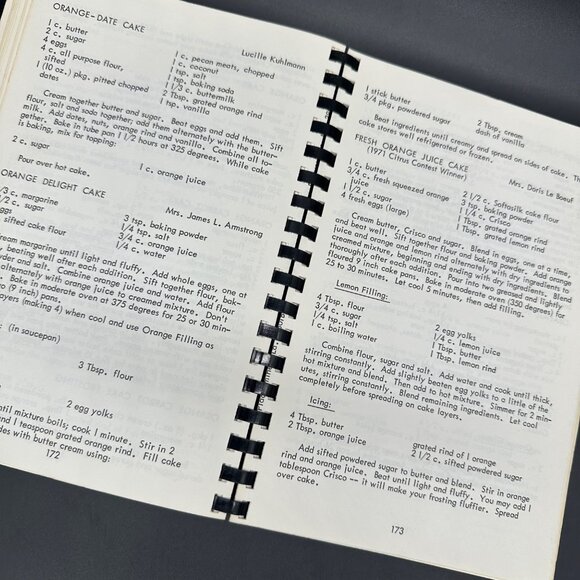 ORANGE-DATE CAKE
Lucille Kuhlmann
1 c. butter
2 c. sugar
4 eggs
4 c. all purpose flour,
sifted
1 (10 oz.) pkg. pitted chopped
dates
1 c. pecan meats, chopped
1 c. coconut
1 tsp. salt
1 tsp. baking soda
1 1/3 c. buttermilk
2 Tbsp. grated orange rind
1 tsp. vanilla
Cream together butter and sugar. Beat eggs and add them. Sift
flour, salt and soda together; add them alternately with the butter-
milk. Add dates, nuts, orange rind and vanilla. Combine all to-
gether. Bake in tube pan 1 1/2 hours at 325 degrees. While cake
is baking, mix for topping:
2 c. sugar
1 c. orange juice
Pour over hot cake.
ORANGE DELIGHT CAKE
Mrs. James L. Armstrong
/3 c. margarine
/2 c. sugar
eggs
sifted cake flour
3 tsp. baking powder
1/4 tsp. salt
3/4 c. orange juice
1/4 c. water
ream margarine until light and fluffy. Add whole eggs, one at
, beating well after each addition. Sift together flour, bak-
wder and salt. Combine orange juice and water. Add flour
alternately with orange juice to creamed mixture. Don't
. Bake in moderate oven at 375 degrees for 25 or 30 min-
o (9 inch) pans.
ayers (making 4) when cool and use Orange Filling as
(in saucepan)
3 Tbsp. flour
2 egg yolks
until mixture boils; cook 1 minute. Stir in 2
and 1 teaspoon grated orange rind. Fill cake
des with butter cream using:
172
1 stick butter
3/4 pkg. powdered sugar
2 Tbsp. cream
dash of vanilla
Beat ingredients until creamy and spread on sides of cake. Th
cake stores well refrigerated or frozen.
FRESH ORANGE JUICE CAKE
(1971 Citrus Contest Winner)
Mrs. Doris Le Boeuf
1 c. butter
3/4 c. fresh squeezed orange
juice
1 1/2 c. sugar
4 fresh eggs (large)
2 1/2 c. Softasilk cake flour
3 tsp. baking powder
1/4 c. Crisco
1 Tbsp. grated orange rind
1 Tbsp. grated lemon rind
Cream butter, Crisco and sugar. Blend in eggs, one at a time,
and beat well. Sift together flour and baking powder. Add orange
juice and orange and lemon rind alternately with dry ingredients to
creamed mixture, beginning and ending with dry ingredients. Blend
thoroughly after each addition. Pour into two greased and lightly
floured 9 inch cake pans. Bake in moderate oven (350 degrees) for
25 to 30 minutes. Let cool 5 minutes, then add filling.
Lemon Filling:
4 Tbsp. flour
3/4 c. sugar
1/4 tsp. salt
1 c. boiling water
2 egg yolks
1/4 c. lemon juice
1 Tbsp. butter
1 Tbsp. lemon rind
Combine flour, sugar and salt. Add water and cook until thick,
stirring constantly. Add slightly beaten egg yolks to a little of the
hot mixture and blend. Then add to hot mixture. Simmer for 2 min-
utes, stirring constantly. Blend remaining ingredients. Let cool
completely before spreading on cake layers.
Icing:
4 Tbsp. butter
2 Tbsp. orange juice
grated rind of 1 orange
2 1/2 c. sifted powdered sugar
Add sifted powdered sugar to butter and blend. Stir in orange
rind and orange juice. Beat until light and fluffy. You may add 1
tablespoon Crisco -- it will make your frosting fluffier. Spread
over cake.
173